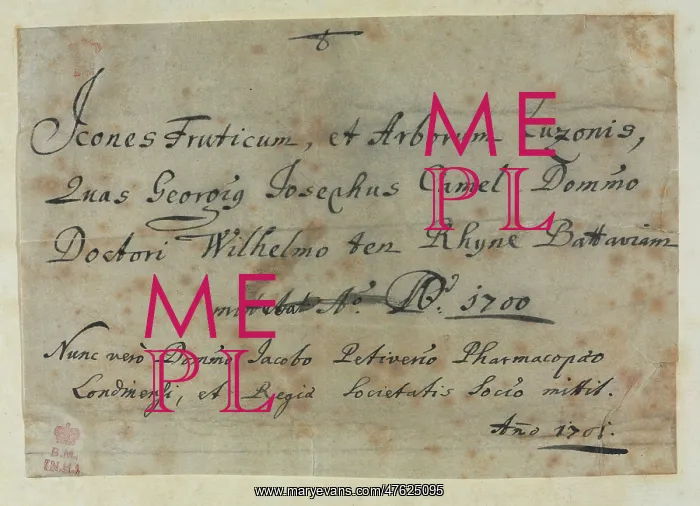 8
Icones Fruticum, et Arborum Luzonis,
Quas Georgig Josephus Camel Dommo
Doctori Wilhelmo ten Rhyne Battaviam
mittebat Ao. Do. 1700
Nunc verò Dommo Jacobo Petiverio Pharmacopæo
Londinensi, et Regiæ Societatis Socio mittit.
Año 1701.
ME
PL
ME
PL
B.M.
(N.H.)
www.maryevans.com/47625095